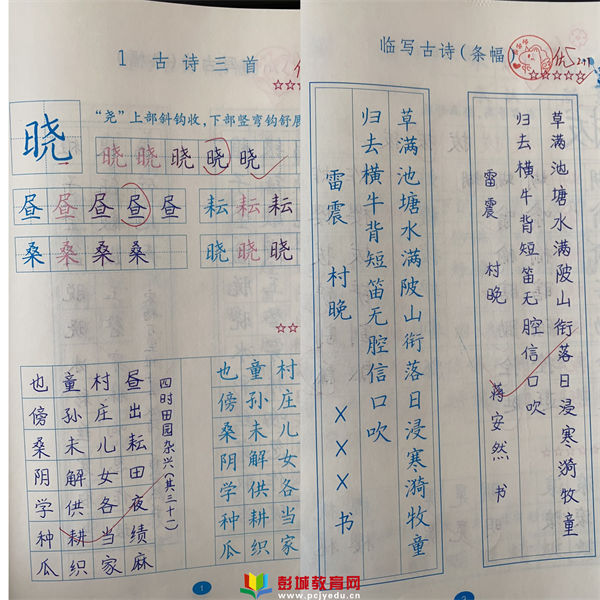 1 古诗三首
☆☆
晓
“尧”上部斜钩收，下部竖弯钩舒展
晓 晓 晓 晓 晓
昼 昼 昼 昼 昼
耘 耘 耘
桑 桑 桑 桑 桑
晓 晓 晓
☆☆
四时田园杂兴（其三十一）
昼出耘田夜绩麻
村庄儿女各当家
童孙未解供耕织
也傍桑阴学种瓜
村庄儿女各当家
童孙未解供耕织
也傍桑阴学种瓜
1
临写古诗（条幅）
优5
☆☆☆☆☆
草满池塘水满陂山衔落日浸寒漪牧童
归去横牛背短笛无腔信口吹
雷震 村晚 X X X 书
草满池塘水满陂山衔落日浸寒漪牧童
归去横牛背短笛无腔信口吹
雷震 村晚 蒋安然 书
2
彭城教育网
www.pcjyedu.cn